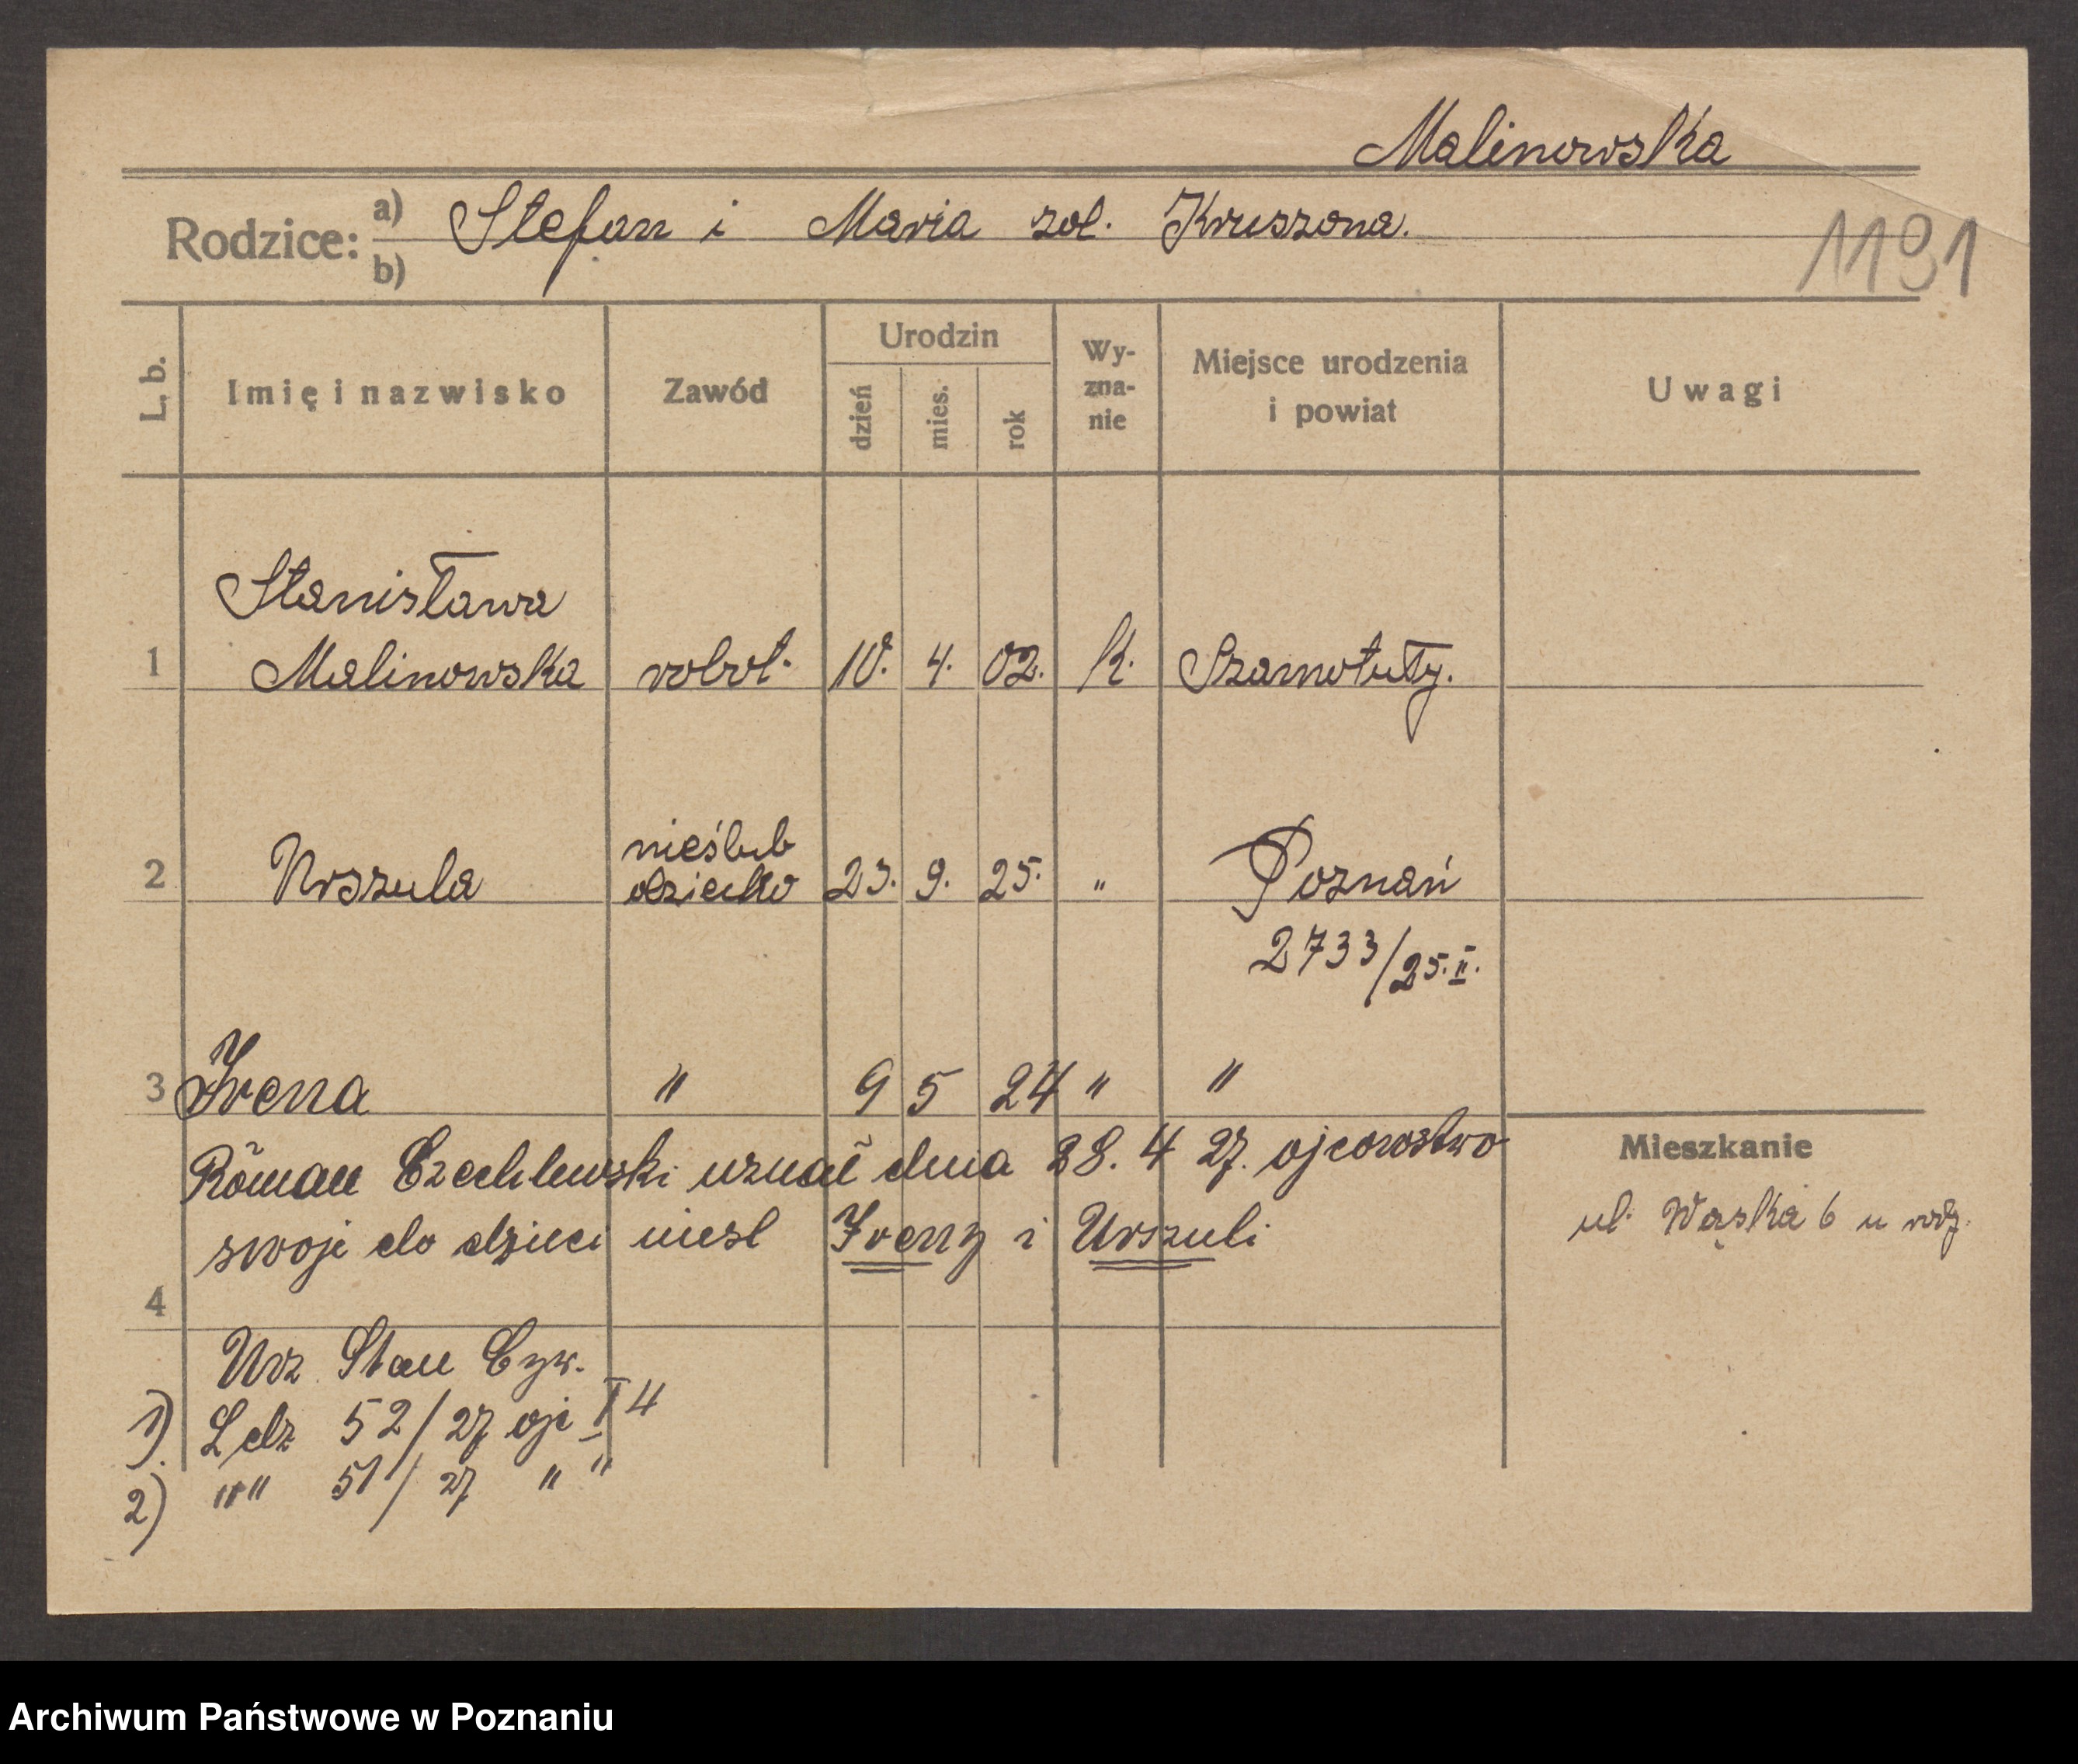 Malinowska
Rodzice: a) Stefan i Maria zol. Kruszona.
b)
1191
L. b. Imię i nazwisko Zawód Urodzin dzień mies. rok Wy-zna-nie Miejsce urodzenia i powiat Uwagi
Stanisława
1 Malinowska robot. 10. 4. 02. K. Szamotuły.
nieślub
2 Urszula dziecko 23. 9. 25. " Poznań
2733/25.II.
3 Irena " 9 5 24 " "
Roman Czechlewski uznał dnia 28. 4 27. ojcowstwo
Mieszkanie
swoje do dzieci niesl Ireny i Urszuli
ul. Wąska 6 u rodz.
4
Urz Stan Cyw.
1) L dz 52/27 ojc I 4
2) "" 51/27 " "
Archiwum Państwowe w Poznaniu